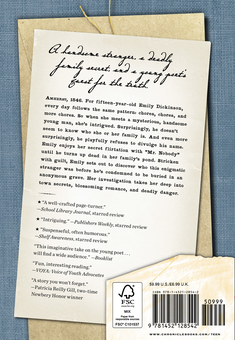 A handsome stranger, a deadly
family secret, and a young poet's
quest for the truth
AMHERST, 1846. For fifteen-year-old Emily Dickinson,
every day follows the same pattern: chores, chores, and
more chores. So when she meets a mysterious, handsome
young man, she's intrigued. Surprisingly, he doesn't
seem to know who she or her family is. And even more
surprisingly, he playfully refuses to divulge his name.
Emily enjoys her secret flirtation with "Mr. Nobody"
until he turns up dead in her family's pond. Stricken
with guilt, Emily sets out to discover who this enigmatic
stranger was before he's condemned to be buried in an
anonymous grave. Her investigation takes her deep into
town secrets, blossoming romance, and deadly danger.
★ "A well-crafted page-turner."
—School Library Journal, starred review
★ "Intriguing." —Publishers Weekly, starred review
★ "Suspenseful, often humorous."
—Shelf Awareness, starred review
"This imaginative take on the young poet . . .
will find a wide audience." —Booklist
"Fun, interesting reading."
—VOYA: Voice of Youth Advocates
"A story you won't forget."
—Patricia Reilly Giff, two-time
Newbery Honor winner
FSC
www.fsc.org
MIX
Paper from
responsible sources
FSC® C101537
$9.99 U.S./£6.99 U.K.
ISBN 978-1-4521-2854-2
50999
9 781452 128542
WWW.CHRONICLEBOOKS.COM/TEEN